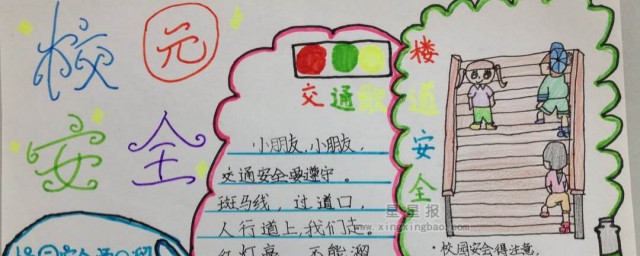 校元
安全
交通歌
小朋友,小朋友,
交通安全要遵守。
斑马线,过道口,
人行道上,我们走。
红灯亮,不能溜
楼道安全
·校园安会得注意,
星星报
www.xingxingbao.com